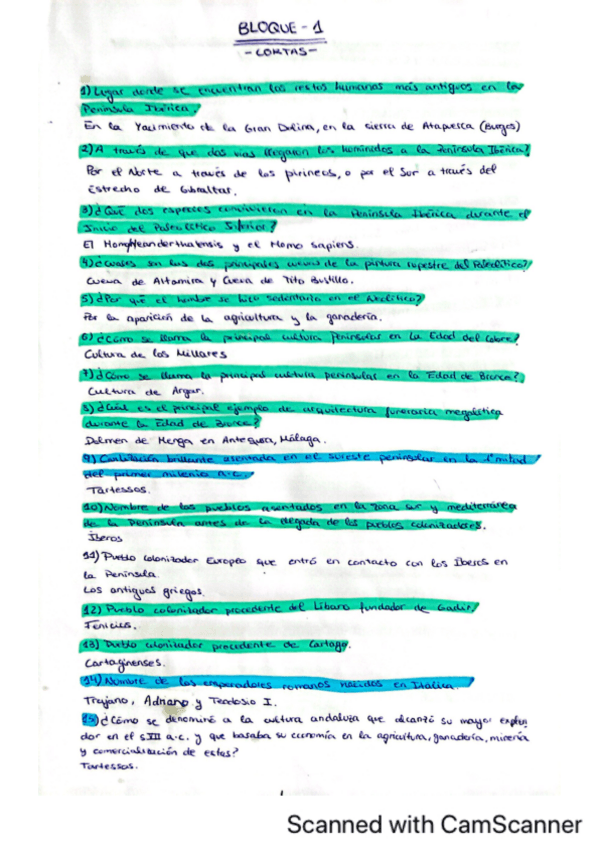 BLOQUE - 1
- CORTAS -
1) Lugar donde se encuentran los restos humanos más antiguos en la
Península Ibérica.
En la Yacimiento de la Gran Dolina, en la sierra de Atapuerca (Burgos)
2) A través de que dos vías llegaron los homínidos a la Península Ibérica?
Por el Norte a través de los pirineos, o por el Sur a través del
Estrecho de Gibraltar.
3) ¿Qué dos especies convivieron en la Península Ibérica durante el
Inicio del Paleolítico Superior?
El HomoNeanderthalensis y el Homo sapiens.
4) ¿Cuáles son las dos principales cuevas de la pintura rupestre del Paleolítico?
Cueva de Altamira y Cueva de Tito Bustillo.
5) ¿Por qué el hombre se hizo sedentario en el Neolítico?
Por la aparición de la agricultura y la ganadería.
6) ¿Cómo se llama la principal cultura Peninsular en la Edad del Cobre?
Cultura de los Millares
7) ¿Cómo se llama la principal cultura peninsular en la Edad de Bronce?
Cultura de Argar.
8) ¿Cuál es el principal ejemplo de arquitectura funeraria megalítica
durante la Edad de Bronce?
Dolmen de Menga en Antequera, Málaga.
9) Civilización brillante asentada en el sureste peninsular en la 1ª mitad
del primer milenio a.C.
Tartessos.
10) Nombre de los pueblos asentados en la zona sur y mediterránea
de la Península antes de la llegada de los pueblos colonizadores.
Íberos
11) Pueblo colonizador Europeo que entró en contacto con los Íberos en
la Península.
Los antiguos griegos.
12) Pueblo colonizador procedente del Líbano fundador de Gadir.
Fenicios.
13) Pueblo colonizador procedente de Cartago.
Cartaginenses.
14) Nombre de los emperadores romanos nacidos en Itálica.
Trajano, Adriano y Teodosio I.
15) ¿Cómo se denominó a la cultura andaluza que alcanzó su mayor esplen
dor en el s.III a.c. y que basaba su economía en la agricultura, ganadería, minería
y comercialización de estos?
Tartessos.
Scanned with CamScanner